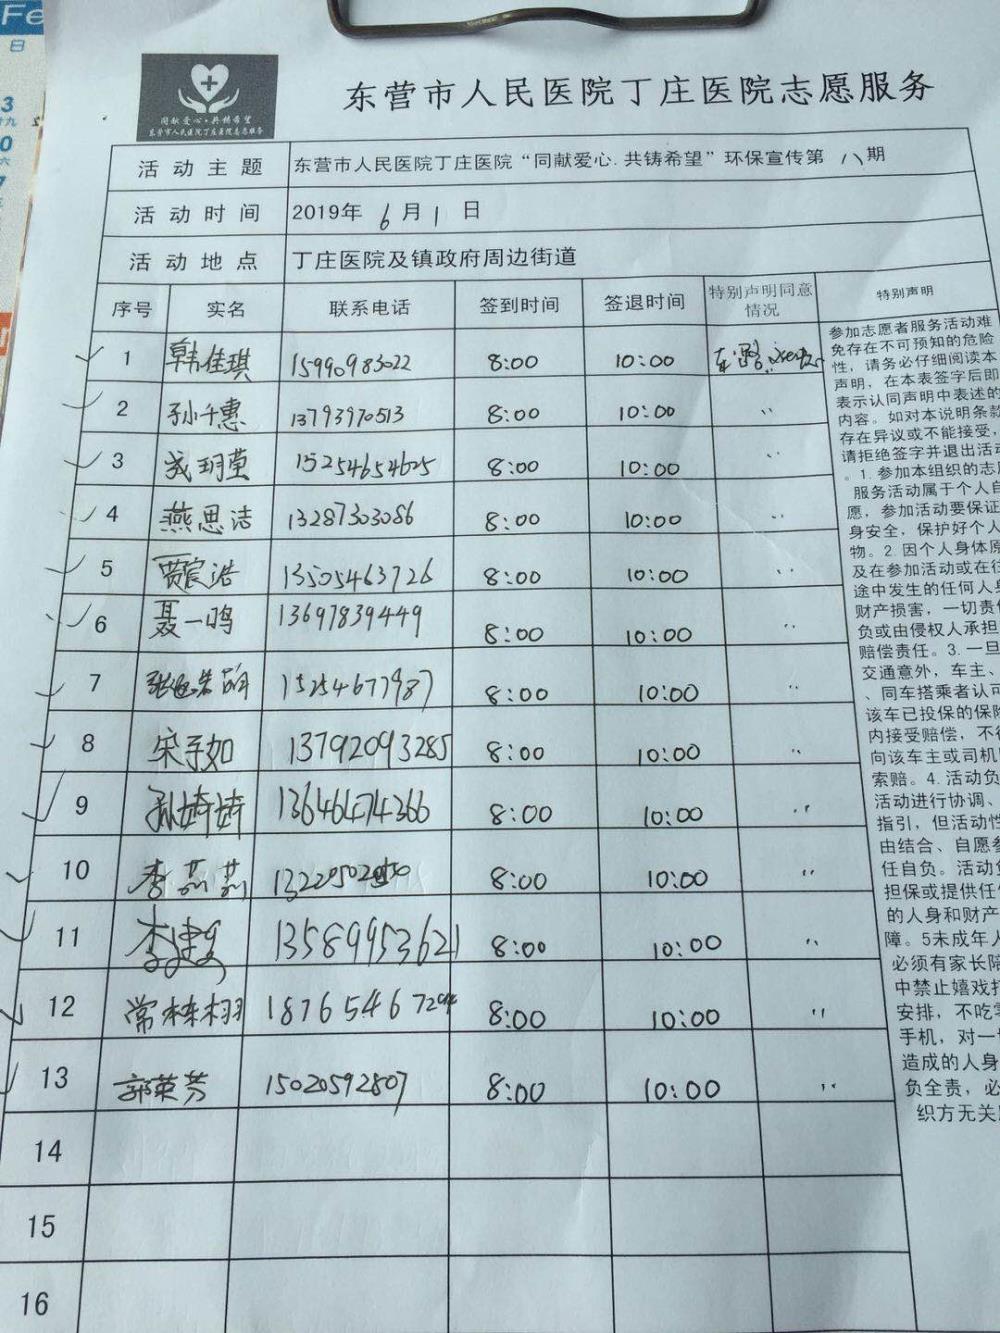 Fe
日
3
0
7
同献爱心·共铸希望
东营市人民医院丁庄医院志愿服务
东营市人民医院丁庄医院志愿服务
活动主题 东营市人民医院丁庄医院“同献爱心.共铸希望”环保宣传第八期
活动时间 2019年6月1日
活动地点 丁庄医院及镇政府周边街道
序号 实名 联系电话 签到时间 签退时间 特别声明同意情况 特别声明
1 韩佳琪 15990983022 8:00 10:00
2 孙千惠 13793970513 8:00 10:00 〃
3 15254654625 8:00 10:00 〃
4 燕思洁 13287303086 8:00 10:00 〃
5 贾宸浩 13505463726 8:00 10:00 〃
6 聂一鸣 13697839449 8:00 10:00 〃
7 15254677987 8:00 10:00 〃
8 宋子如 13792093285 8:00 10:00 〃
9 孙婷婷 13646474366 8:00 10:00 〃
10 李燕燕 8:00 10:00 〃
11 李建 13589953621 8:00 10:00 〃
12 常栋栩 8:00 10:00 〃
13 郭荣芳 15020592807 8:00 10:00 〃
14
15
16
参加志愿者服务活动难
免存在不可预知的危险
性，请务必仔细阅读本
声明，在本表签字后即
表示认同声明中表述的
内容。如对本说明条款
存在异议或不能接受，
请拒绝签字并退出活动
。1.参加本组织的志愿
服务活动属于个人自
愿，参加活动要保证
身安全，保护好个人
物。2.因个人身体原
及在参加活动或在往
途中发生的任何人身
财产损害，一切责任
负或由侵权人承担
赔偿责任。3.一旦
交通意外，车主、
、同车搭乘者认可
该车已投保的保险
内接受赔偿，不得
向该车主或司机
索赔。4.活动负
活动进行协调、
指引，但活动性
由结合、自愿参
任自负。活动负
担保或提供任何
的人身和财产
障。5未成年人
必须有家长陪
中禁止嬉戏打
安排，不吃零
手机，对一切
造成的人身
负全责，必
织方无关